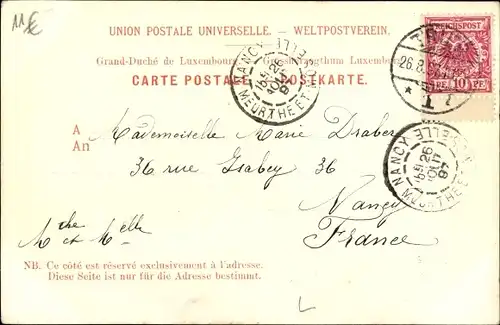 11 €
UNION POSTALE UNIVERSELLE. – WELTPOSTVEREIN.
Grand-Duché de Luxembourg. Grossherzogthum Luxemburg
CARTE POSTALE POSTKARTE.
REICHSPOST
10 PF
26.8
NANCY
26
AOUT
97
MEURTHE ET
A
An
Mademoiselle Marie Draber
36 rue Isabey 36
Nancy
France
NANCY
26
AOUT
97
MEURTHE ET
Mche et Melle
NB. Ce côté est réservé exclusivement à l'adresse.
Diese Seite ist nur für die Adresse bestimmt.